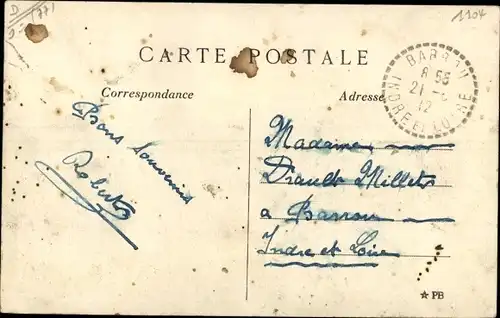 D 1771
1104
CARTE POSTALE
Correspondance
Adresse
BARROU
8 55
21
12
INDRE ET LOIRE
Bons Souvenirs
Robert
Madame
Drault Millet
a Barrou
Indre et Loire
☆ PB